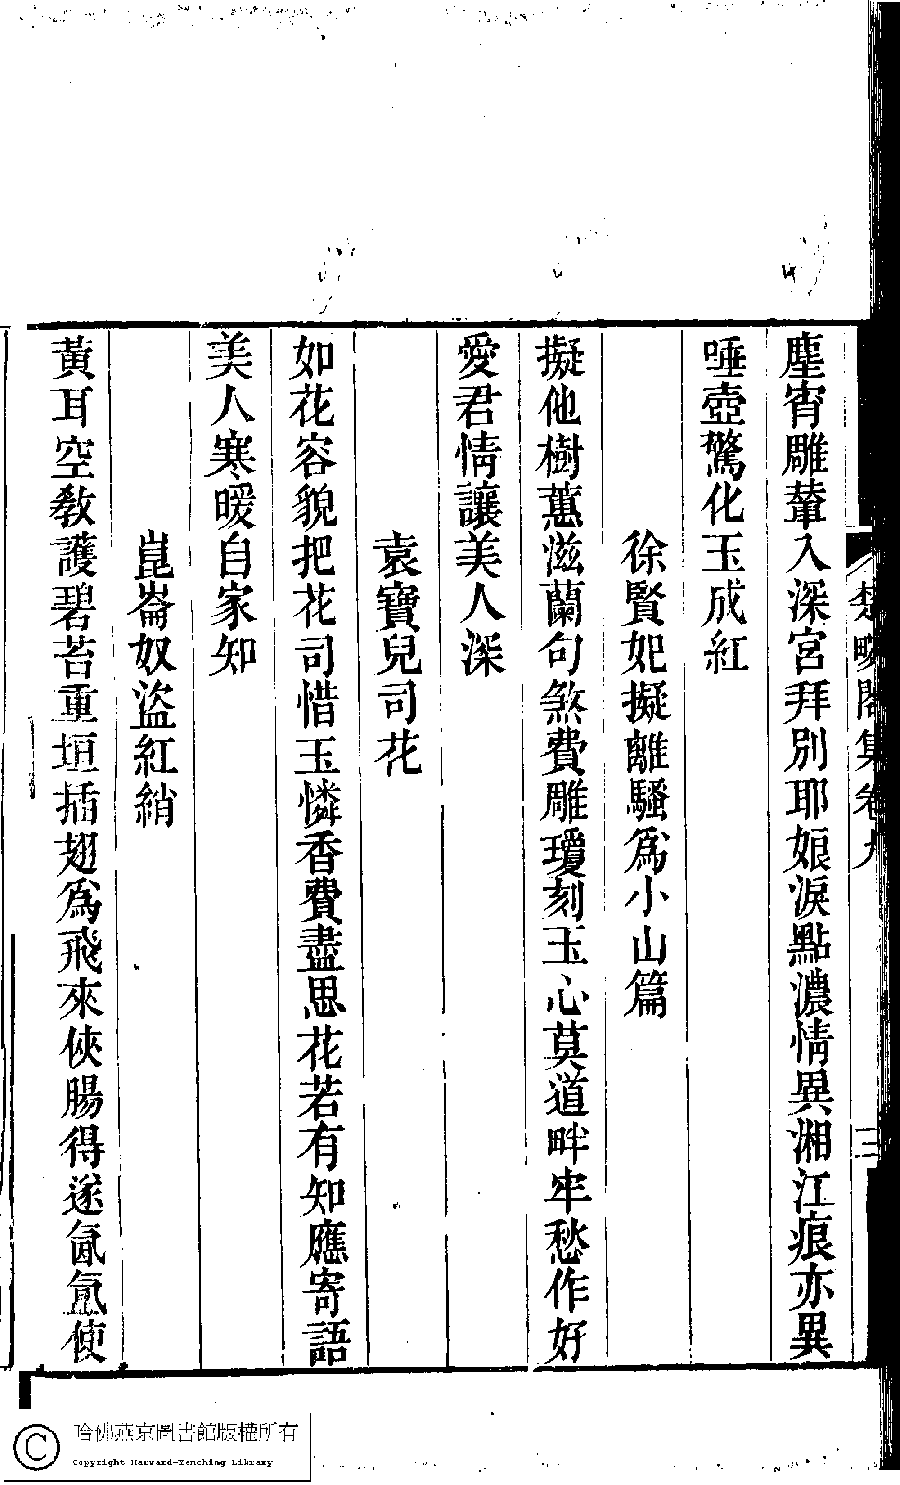 塵宵雕輦入深宮拜別耶娘淚點濃情異湘江痕亦異
唾壺驚化玉成紅
徐賢妃擬離騷爲小山篇
擬他樹蕙滋蘭句煞費雕瓊刻玉心莫道畔牢愁作好
愛君情讓美人深
袁寶兒司花
如花容貌把花司惜玉憐香費盡思花若有知應寄語
美人寒暖自家知
崑崙奴盜紅綃
黃耳空教護碧苔重垣插翅爲飛來俠腸得遂氤氳使
閣集卷九
三
哈佛燕京圖書館版權所有
Copyright Harvard-Yenching Library